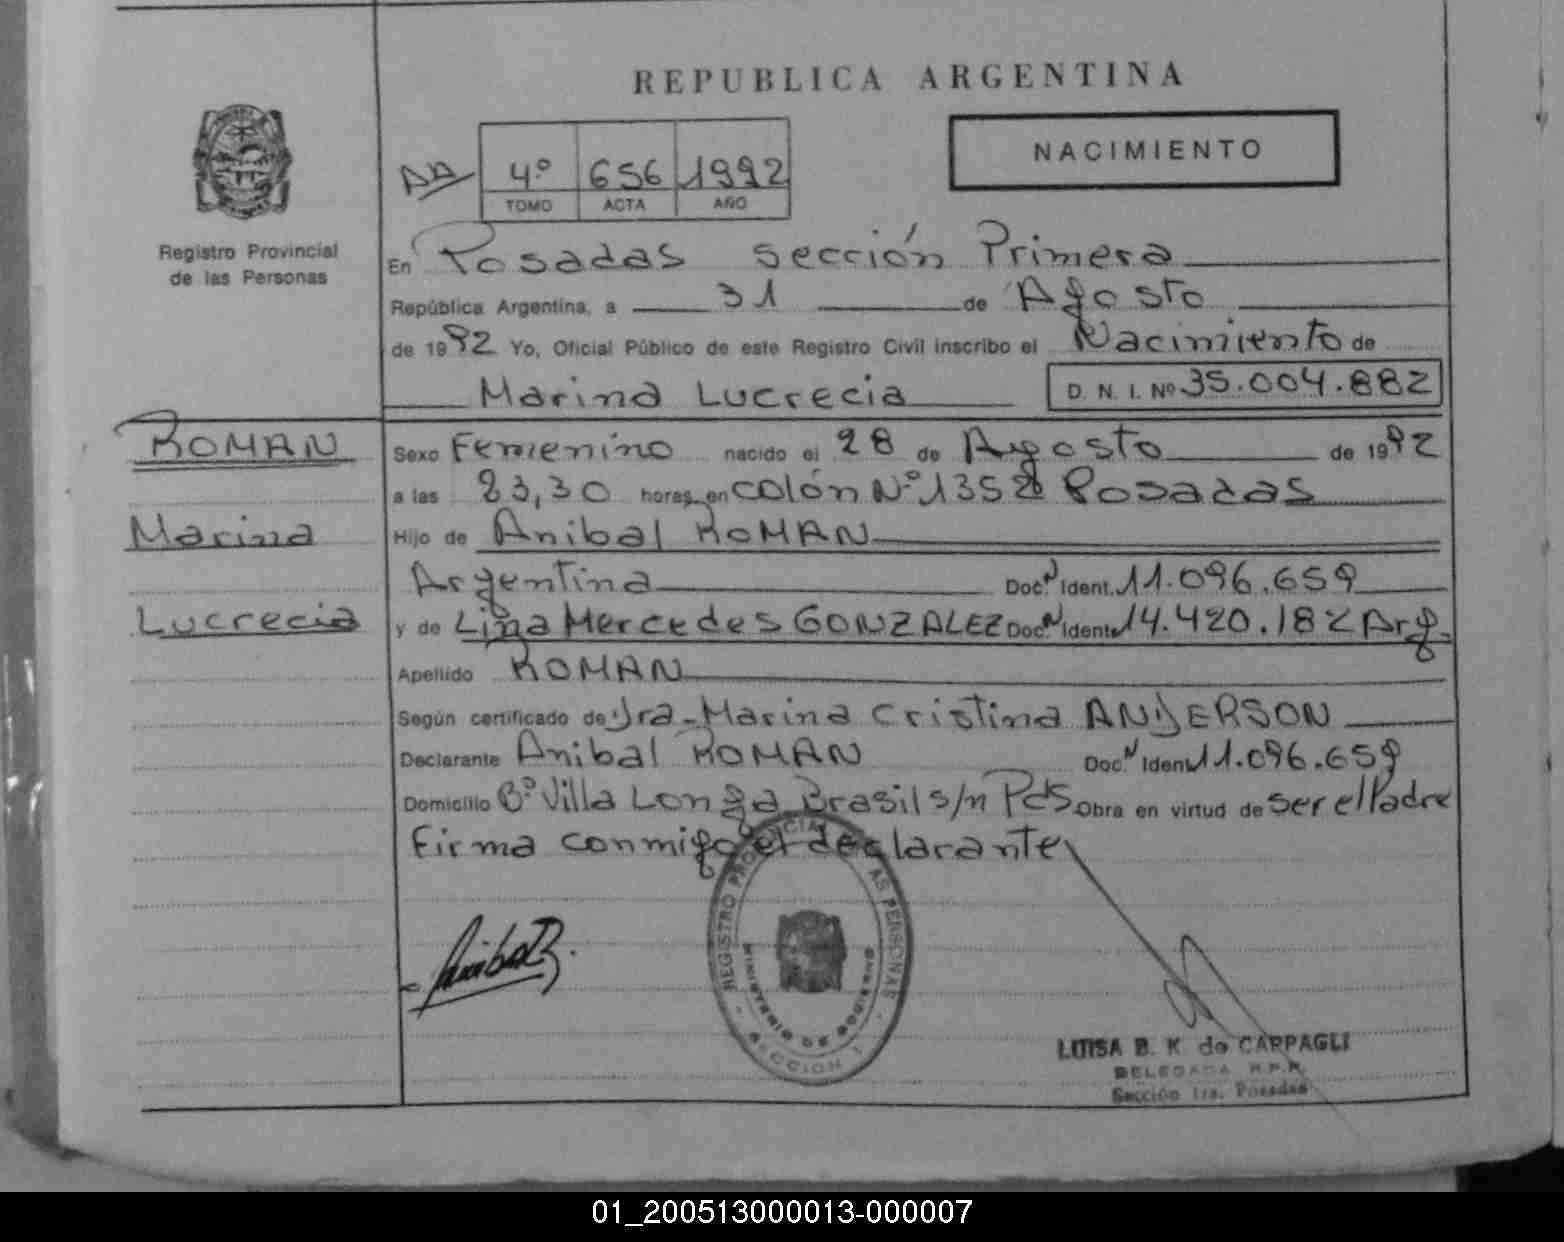 REPUBLICA ARGENTINA
NACIMIENTO
4º 656 1992
TOMO ACTA AÑO
Registro Provincial
de las Personas
En Posadas sección Primera
República Argentina, a 31 de Agosto
de 1992 Yo, Oficial Público de este Registro Civil inscribo el Nacimiento de
Marina Lucrecia D. N. I. Nº 35.004.882
ROMAN
Marina
Lucrecia
Sexo Femenino nacido el 28 de Agosto de 1992
a las 23,30 horas, en colón Nº 1352 Posadas
Hijo de Anibal ROMAN
Argentina Doc. N Ident. 11.096.659
y de Lina Mercedes GONZALEZ Doc. N Ident. 14.420.182 Arg.
Apellido ROMAN
Según certificado de Dra. Marina Cristina ANDERSON
Declarante Anibal ROMAN Doc. N Ident. 11.096.659
Domicilio Bº Villa Longa Brasil s/n Pds Obra en virtud de ser el Padre
Firma conmigo el declarante
Anibal R.
REGISTRO PROVINCIAL AS PERSONAS
MINISTERIO DE GOBIERNO
SECCION 1
LUISA B. K. de CARPAGLI
DELEGADA R.P.P.
Sección 1ra. Posadas
01_200513000013-000007